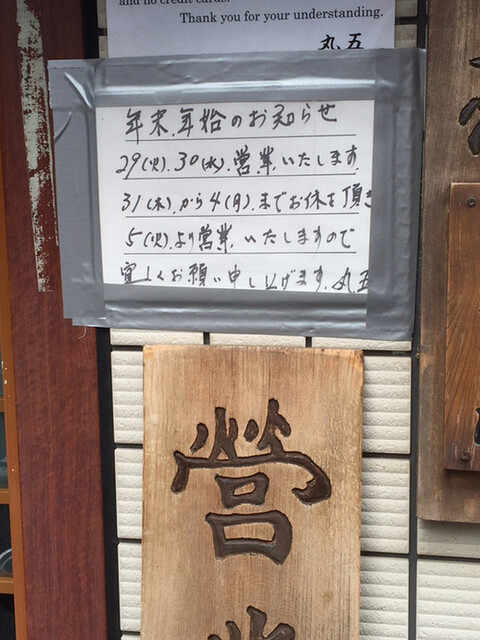 and no credit cards.
Thank you for your understanding.
丸五
年末.年始のお知らせ
29(火).30(水).営業いたします.
31(木).から4(月).までお休を頂き
5(火).より営業.いたしますので
宜しくお願い申し上げます.丸五
営